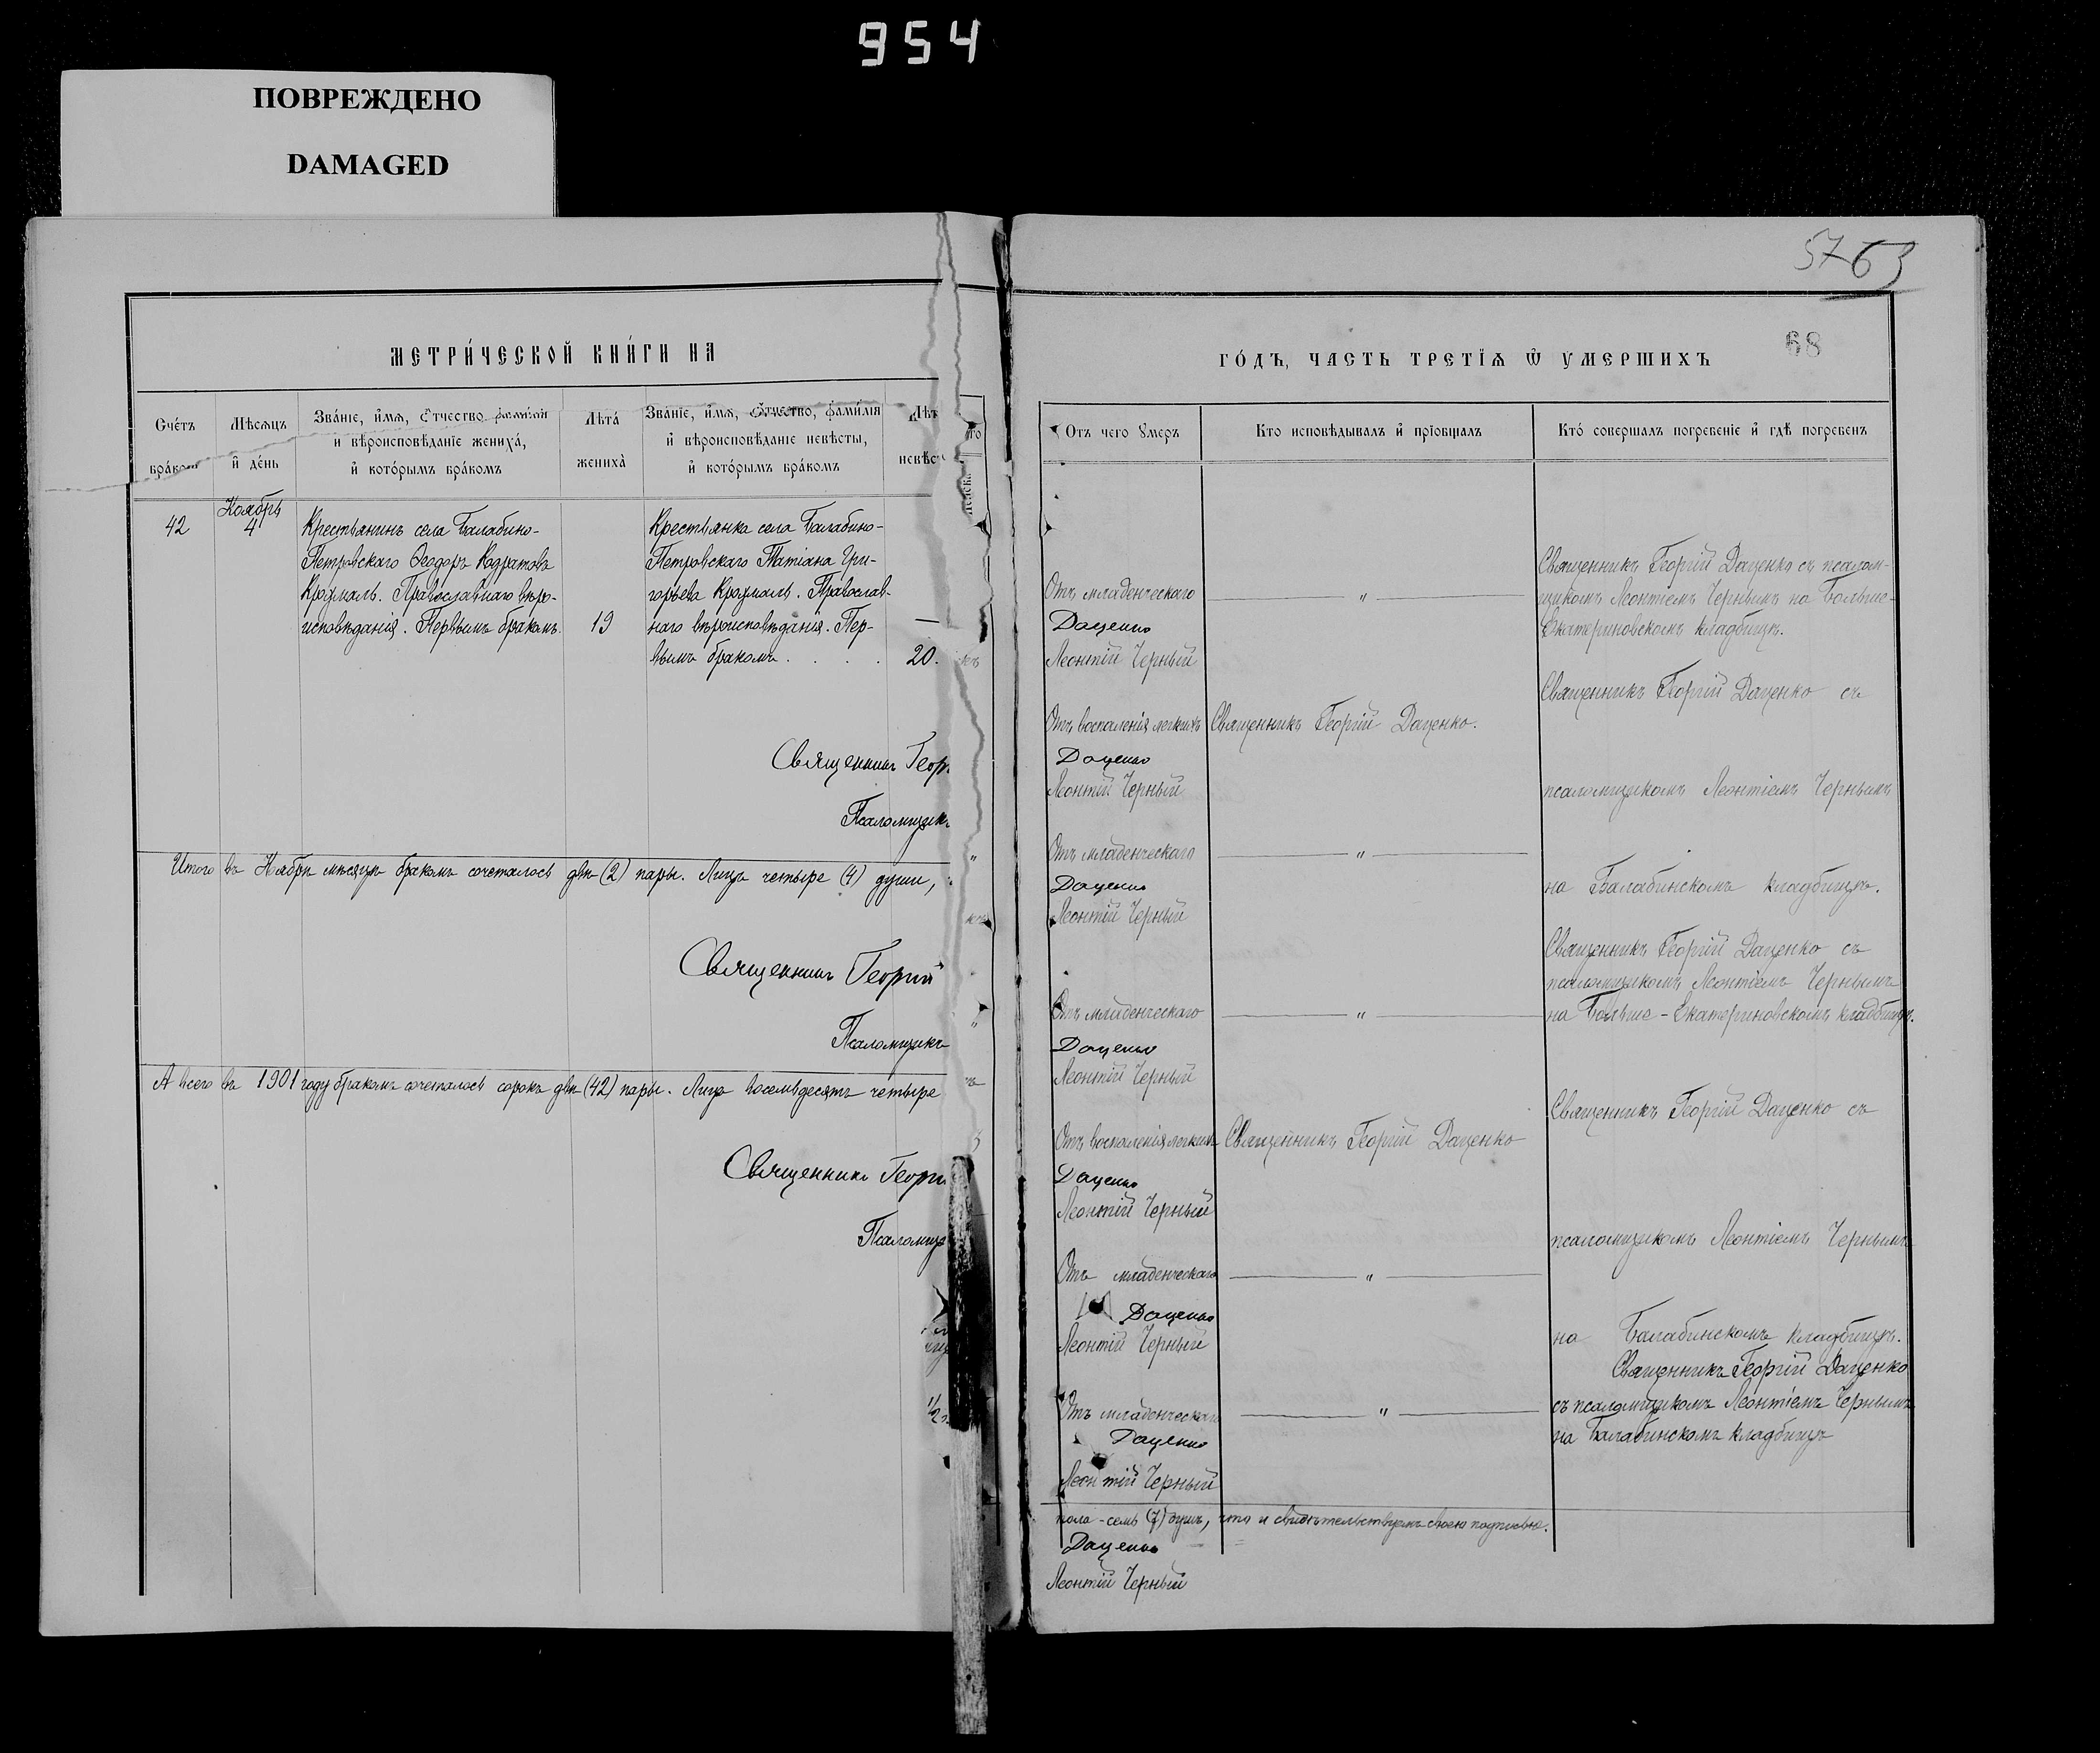 954
ПОВРЕЖДЕНО
DAMAGED
57 63
68
МЕТРИ́ЧЕСКОЙ КНИ́ГИ НА
Счётъ бра́ковъ
Мѣсяцъ и҆ де́нь
Зва́нїе, и҆́мѧ, ѻ҆́тчество, фами́лїѧ
и҆ вѣроисповѣ́данїе жениха̀,
и҆ кото́рымъ бра́комъ
Лѣта̀
жениха̀
Зва́нїе, и҆́мѧ, ѻ҆́тчество, фами́лїѧ
и҆ вѣроисповѣ́данїе невѣ́сты,
и҆ кото́рымъ бра́комъ
Лѣт
невѣс
42
Ноябрь
4
Крестьянинъ села Балабино-
Петровскаго Ѳеодоръ
Православнаго вѣро-
исповѣданія. Первымъ бракомъ.
19
Крестьянка села Балабино-
Петровскаго Татіана Гри-
горьева Православ-
наго вѣроисповѣданія. Пер-
вымъ бракомъ . . . .
20.
Священникъ Геор
Псаломщикъ
Итого въ Ноябрѣ мѣсяцѣ бракомъ сочеталось двѣ (2) пары. Лицъ четыре (4) души,
Священникъ Георгій
Псаломщикъ
А всего въ 1901 году бракомъ сочеталось сорокъ двѣ (42) пары. Лицъ восемьдесятъ четыре
Священникъ Георгі
Псаломщ
ГО́ДЪ, ЧАСТЬ ТРЕТЇѦ Ѽ УМЕРШИХЪ
Отъ чего ᲂу҆́меръ
Кто исповѣ́дывалъ и҆ прїѡбща́лъ
Кто́ соверша́лъ погребе́нїе и҆ гдѣ̀ погребе́нъ
Отъ младенческаго
"
Священникъ Георгій Даценко съ псалом-
щикомъ Леонтіемъ Чернымъ на Больше-
Екатериновскомъ кладбищѣ.
Даценко
Леонтій Черный
Отъ воспаленія легкихъ
Священникъ Георгій Даценко.
Священникъ Георгій Даценко съ
псаломщикомъ Леонтіемъ Чернымъ
на Балабинскомъ кладбищѣ.
Даценко
Леонтій Черный
Отъ младенческаго
"
Даценко
Леонтій Черный
Священникъ Георгій Даценко съ
псаломщикомъ Леонтіемъ Чернымъ
на Больше-Екатериновскомъ кладбищѣ.
Отъ младенческаго
"
Даценко
Леонтій Черный
Отъ воспаленія легкихъ
Священникъ Георгій Даценко
Священникъ Георгій Даценко съ
псаломщикомъ Леонтіемъ Чернымъ
на Балабинскомъ кладбищѣ.
Даценко
Леонтій Черный
Отъ младенческаго
"
Даценко
Леонтій Черный
Священникъ Георгій Даценко
съ псаломщикомъ Леонтіемъ Чернымъ
на Балабинскомъ кладбищѣ
Отъ младенческаго
"
Даценко
Леонтій Черный
пола - семь (7) душъ, что и свидѣтельствуемъ своею подписью.
Даценко
Леонтій Черный